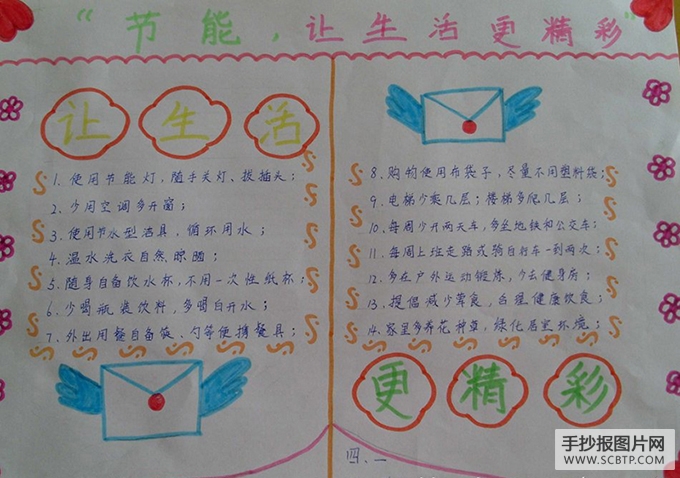 “节能，让生活更精彩”
让生活
1. 使用节能灯，随手关灯、拔插头；
2. 少用空调多开窗；
3. 使用节水型洁具，循环用水；
4. 温水洗衣自然晾晒；
5. 随身自备饮水杯，不用一次性纸杯；
6. 少喝瓶装饮料，多喝白开水；
7. 外出用餐自备筷、勺等便携餐具；
8. 购物使用布袋子，尽量不用塑料袋；
9. 电梯少乘几层；楼梯多爬几层；
10. 每周少开两天车，多坐地铁和公交车；
11. 每周上班走路或骑自行车一到两次；
12. 多在户外运动锻炼，少去健身房；
13. 提倡减少荤食，合理健康饮食；
14. 家里多养花种草，绿化居室环境；
更精彩
四、一
手抄报图片网
WWW.SCBTP.COM